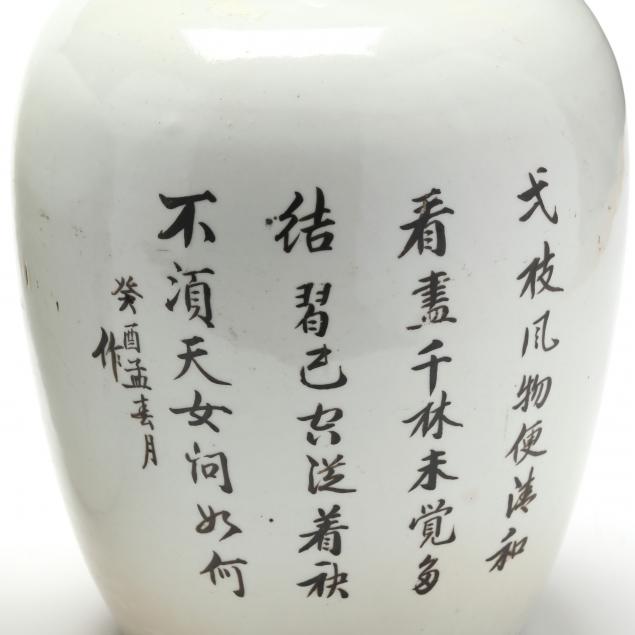 弌枝風物便清和
看盡千林未覺多
結習已空從着袂
不須天女問如何
癸酉孟春月
作